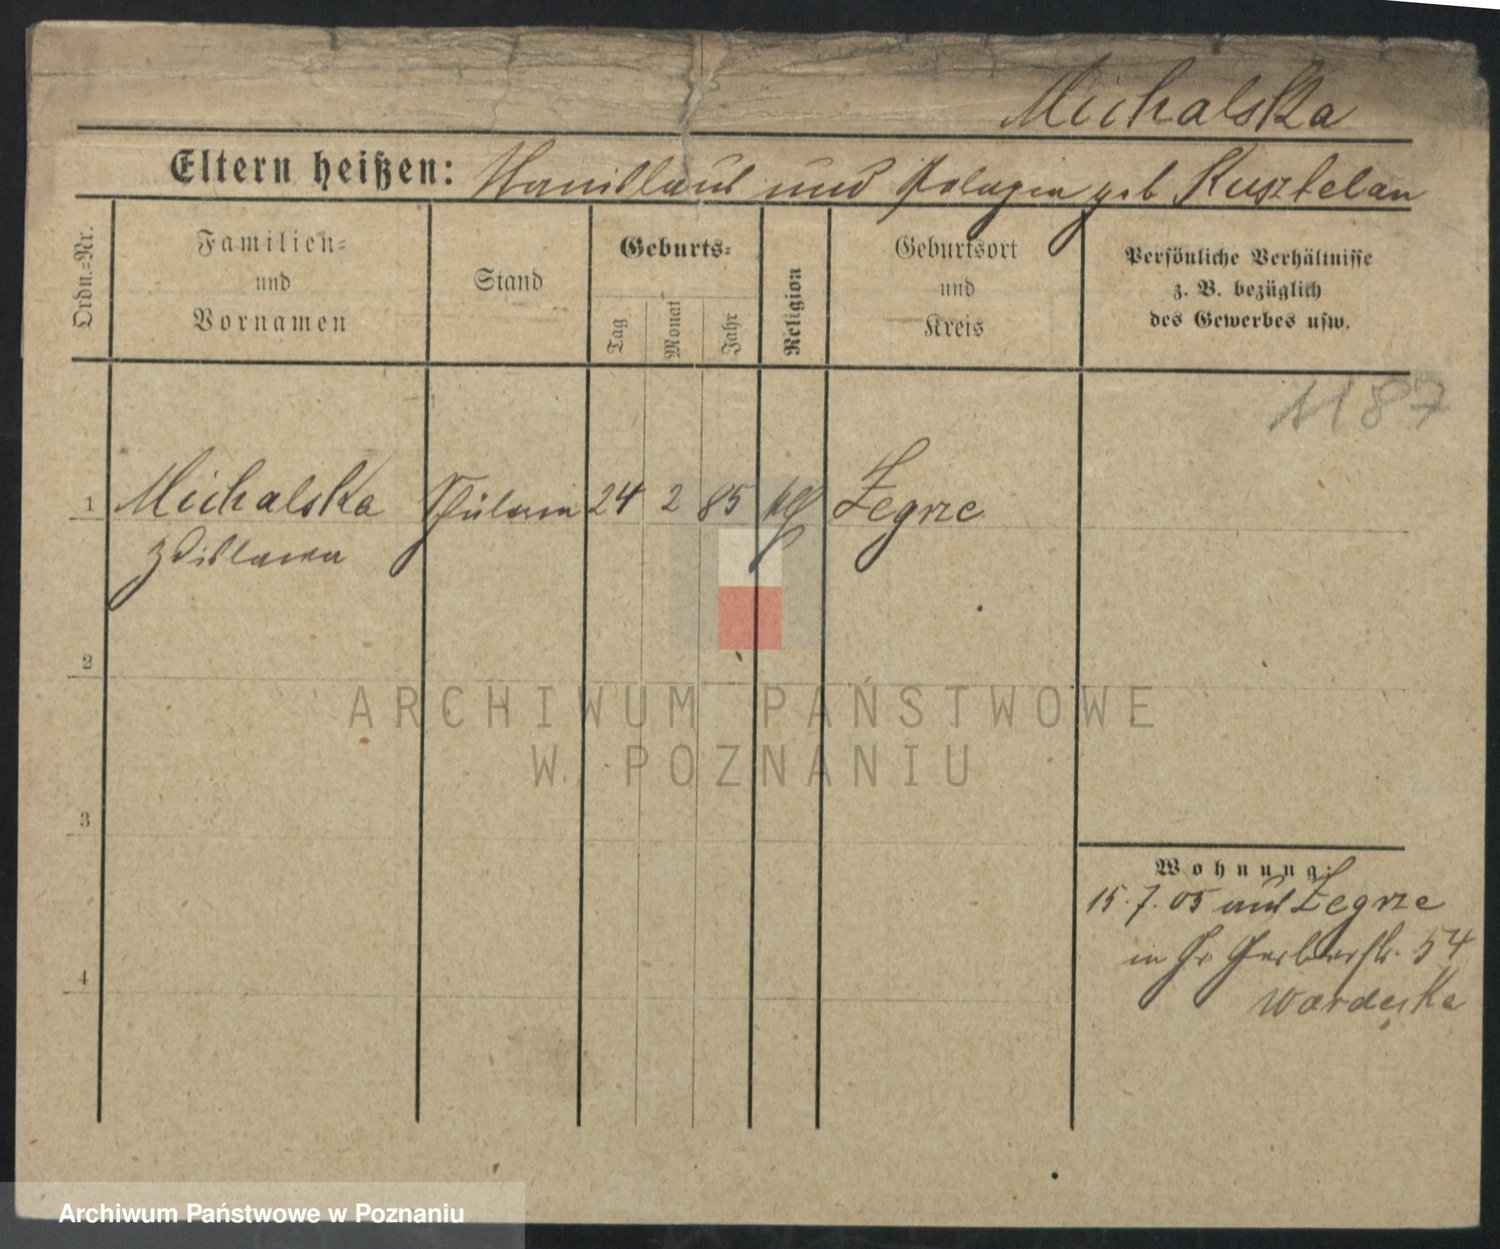 Michalska
Eltern heißen: Stanislaus und Pelagia geb Kusztelan
Ordn.=Nr.
Familien=
und
Vornamen
Stand
Geburts=
Tag
Monat
Jahr
Religion
Geburtsort
und
Kreis
Persönliche Verhältnisse
z. B. bezüglich
des Gewerbes usw.
1187
1 Michalska Schülerin 24 2 85 kth Zegrze
Zdislawa
2
3
4
Wohnung:
15.7.05 aus Zegrze
in Gr Gerberstr. 54
Wardęska
ARCHIWUM PAŃSTWOWE
W POZNANIU
Archiwum Państwowe w Poznaniu